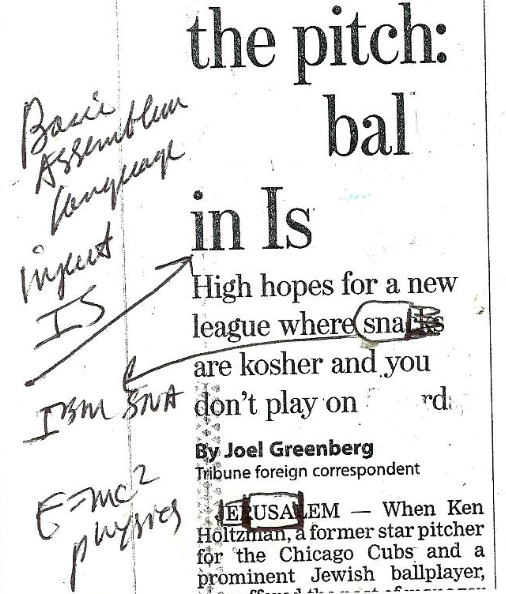 the pitch:
bal
in Is
High hopes for a new
league where snacks
are kosher and you
don't play on rd
By Joel Greenberg
Tribune foreign correspondent
JERUSALEM — When Ken
Holtzman, a former star pitcher
for the Chicago Cubs and a
prominent Jewish ballplayer,
Basic
Assembler
Language
input
IS
IBM SNA
E=mc2
physics